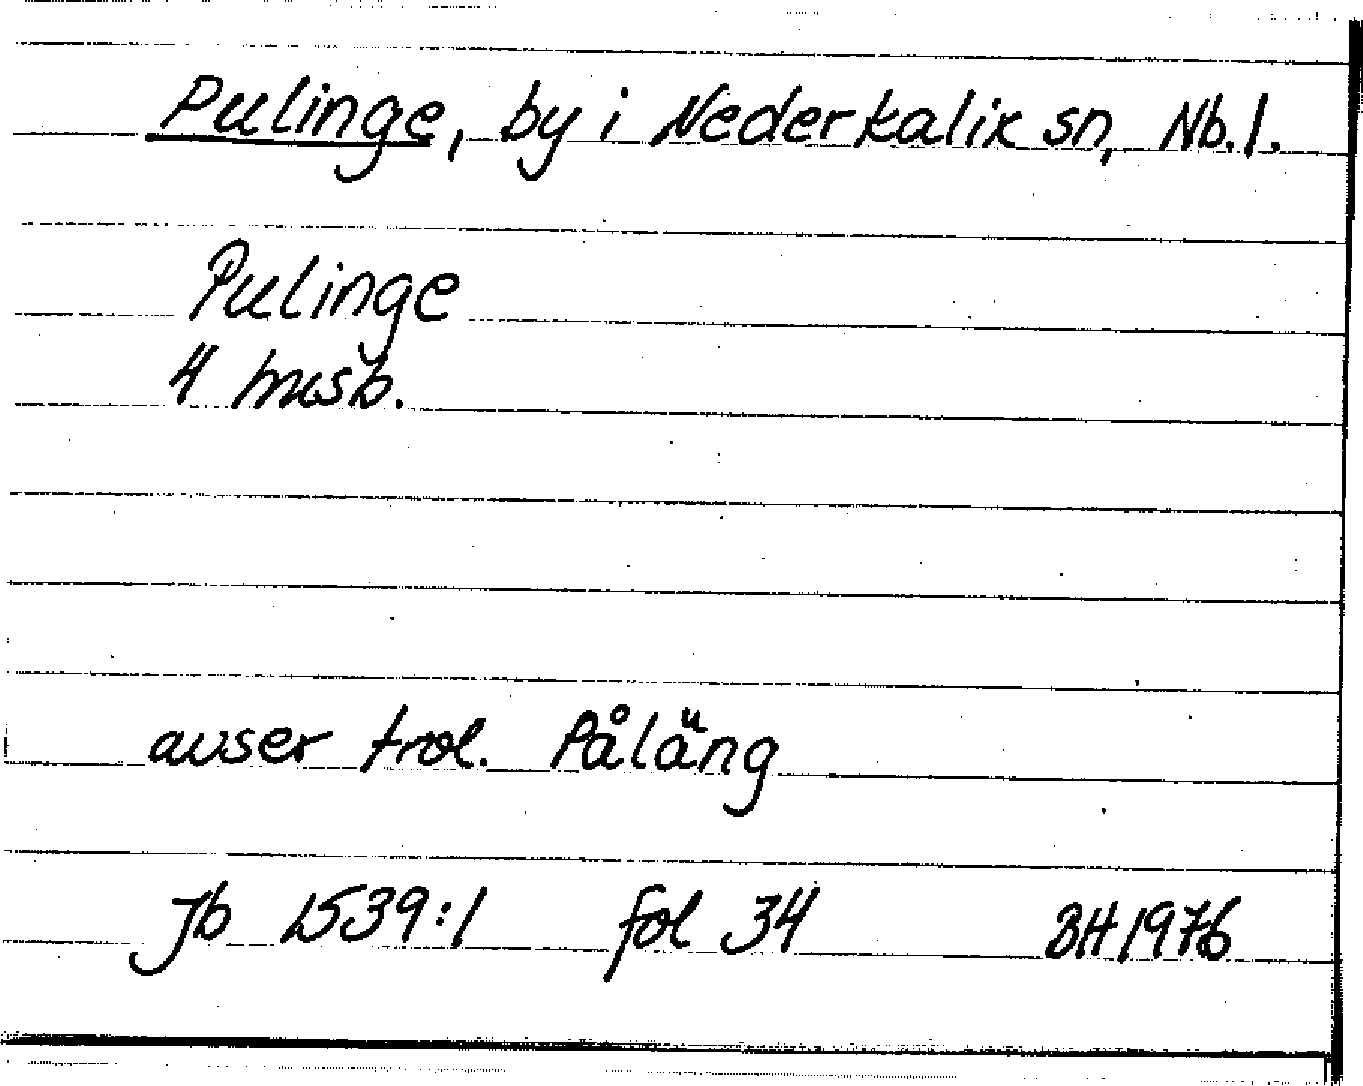 Pulinge, by i Nederkalix sn, Nb.l.
Pulinge
4 msb.
avser trol. Påläng
Jb 1539:1 fol 34 BH 1976